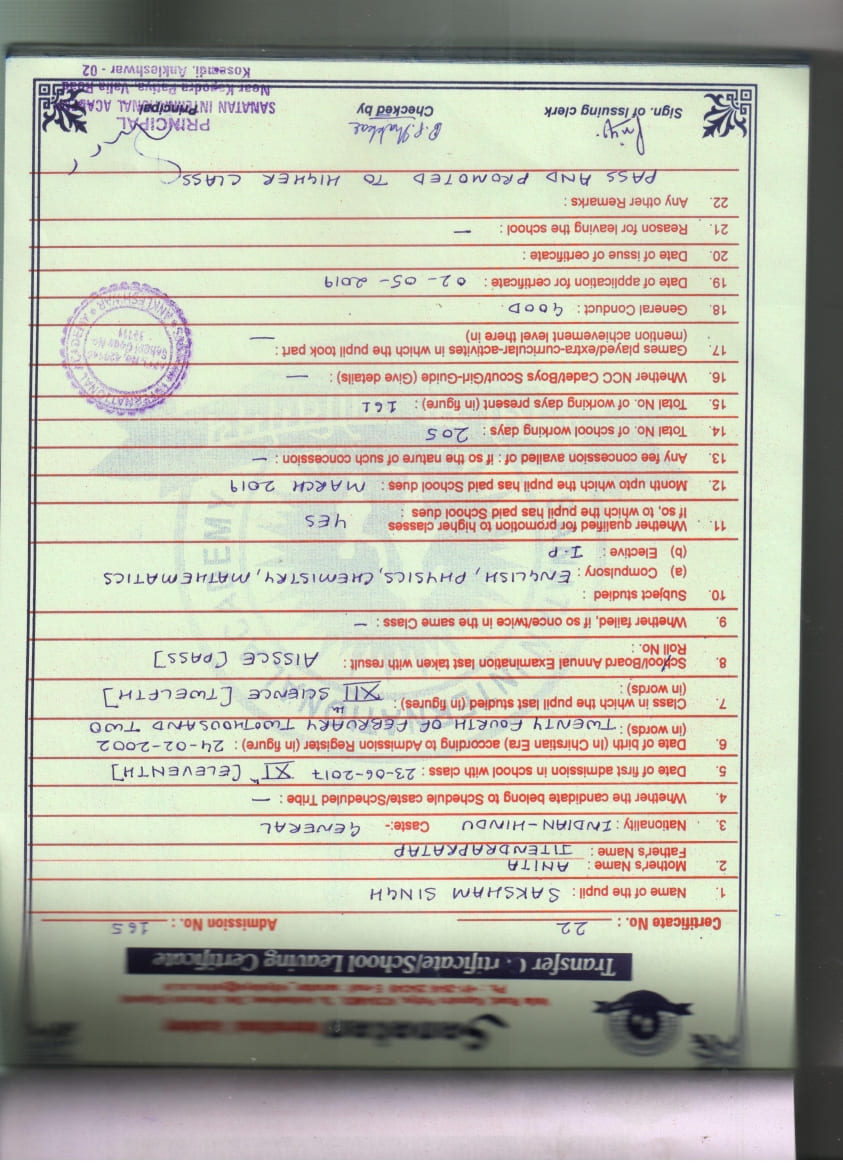 Sanatan International Academy
Transfer Certificate/School Leaving Certificate
Certificate No. : 22 Admission No. : 165
1. Name of the pupil : SAKSHAM SINGH
2. Mother's Name : ANITA
Father's Name : JITENDRAPRATAP
3. Nationality : INDIAN-HINDU Caste:- GENERAL
4. Whether the candidate belong to Schedule caste/Scheduled Tribe : —
5. Date of first admission in school with class : 23-06-2017 XIth [ELEVENTH]
6. Date of birth (In Christian Era) according to Admission Register (in figure) : 24-02-2002
(in words) : TWENTY FOURTH OF FEBRUARY TWOTHOUSAND TWO
7. Class in which the pupil last studied (in figures) : XIIth SCIENCE [TWELFTH]
(in words) :
8. School/Board Annual Examination last taken with result : AISSCE [PASS]
Roll No. :
9. Whether failed, if so once/twice in the same Class : —
10. Subject studied :
(a) Compulsory : ENGLISH, PHYSICS, CHEMISTRY, MATHEMATICS
(b) Elective : I.P
11. Whether qualified for promotion to higher classes YES
If so, to which the pupil has paid School dues :
12. Month upto which the pupil has paid School dues : MARCH 2019
13. Any fee concession availed of : if so the nature of such concession : —
14. Total No. of school working days : 205
15. Total No. of working days present (in figure) : 161
16. Whether NCC Cadet/Boys Scout/Girl-Guide (Give details) : —
17. Games played/extra-curricular-activites in which the pupil took part :
(mention achievement level there in) —
18. General Conduct : GOOD.
19. Date of application for certificate : 02-05-2019
20. Date of issue of certificate :
21. Reason for leaving the school : —
22. Any other Remarks :
PASS AND PROMOTED TO HIGHER CLASS
Sign. of Issuing clerk Checked by Principal
PRINCIPAL
SANATAN INTERNATIONAL ACADEMY
Near Kapodra Patiya, Valia Road
Kosamdi, Ankleshwar - 02
SANATAN INTERNATIONAL ACADEMY